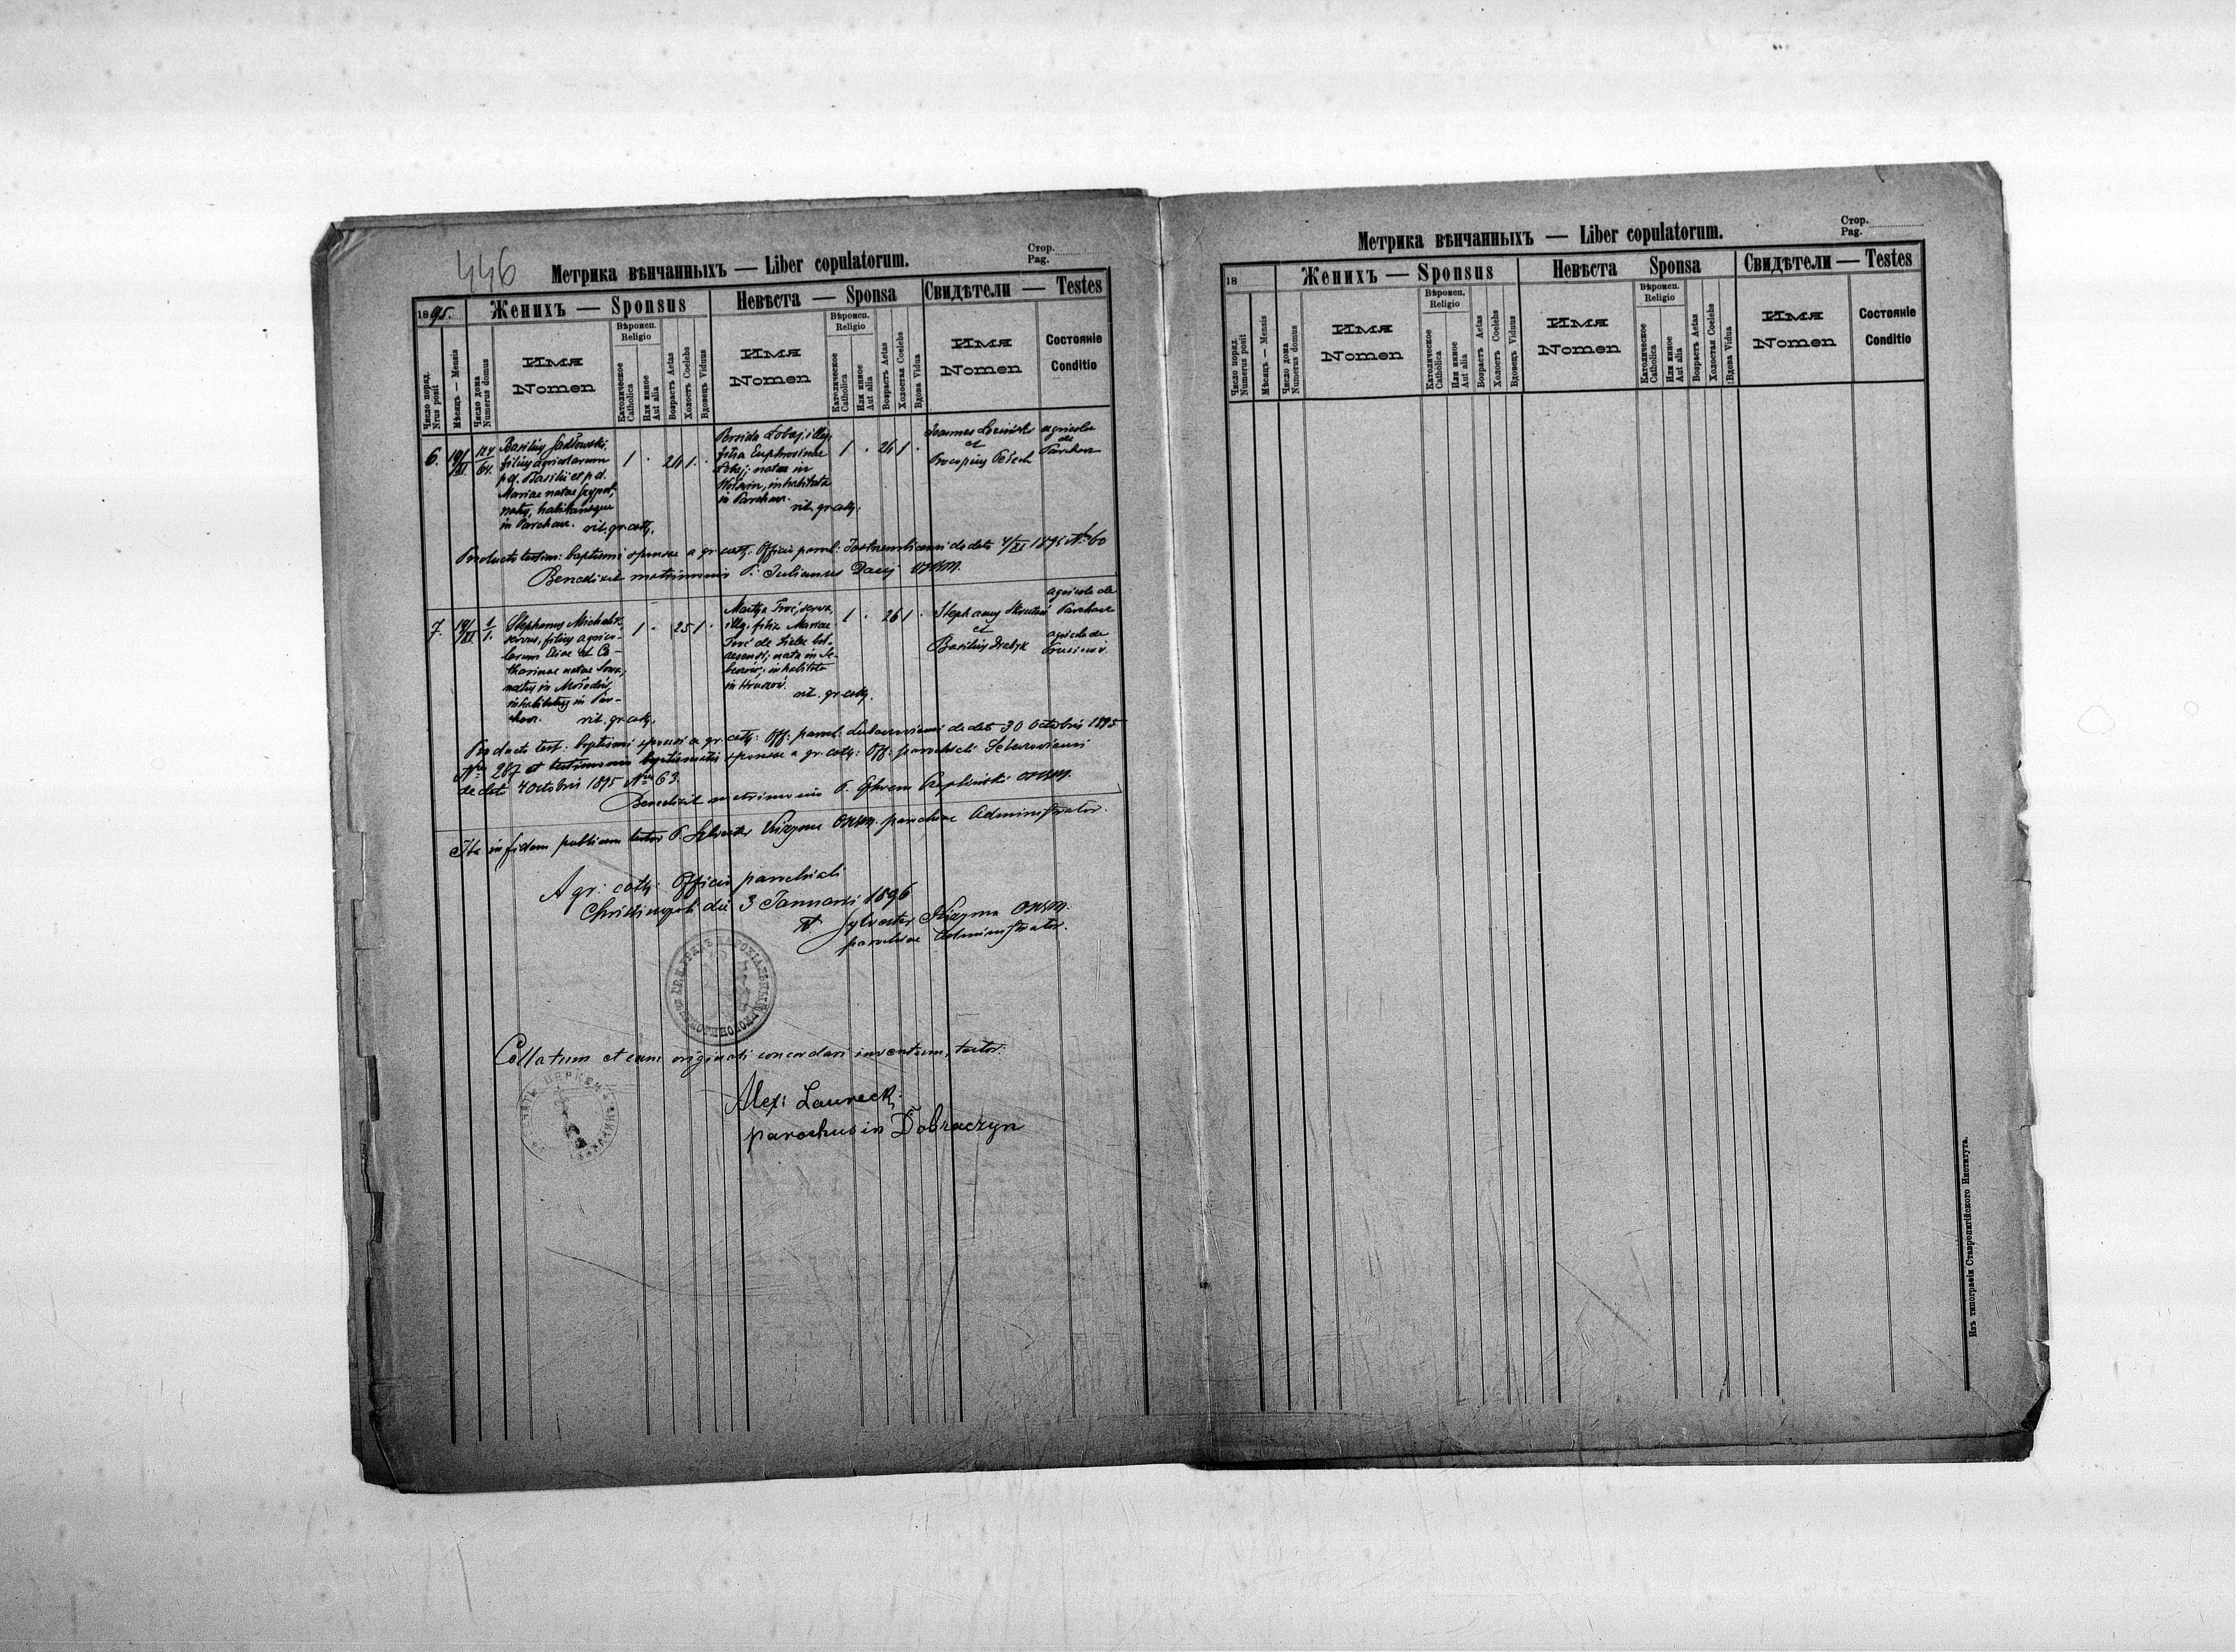 446
Метрика вѣнчанныхъ — Liber copulatorum.
Стор.
Pag.
1895.
Женихъ — Sponsus
Невѣста — Sponsa
Свидѣтели — Testes
Число поряд.
Nrus posit
Мѣсяцъ — Mensis
Число дома
Numerus domus
Имя
Nomen
Вѣроисп.
Religio
Католическое
Catholica
Или иное
Aut alia
Возрастъ Aetas
Холостъ Coelebs
Вдовецъ Viduus
Имя
Nomen
Вѣроисп.
Religio
Католическое
Catholica
Или иное
Aut alia
Возрастъ Aetas
Холостая Coelebs
Вдова Vidua
Имя
Nomen
Состояніе
Conditio
6.
19/XI
124
64.
Basilius Sadłowski,
filius agricolarum
p.d. Basilii et p.d.
Mariae natae
natus, habitansque
in Parchacz. rit. gr. cath.
1 . 24 1 .
Łobaj, illeg.
filia Euphrosinae
Łobaj; nata in
Wolswin, inhabitata
in Parchacz.
rit. gr. cath.
1 . 24 1 .
Joannes
et
Procopius
agricolae
de
Parchacz
Producto testim: baptismi sponsae a gr. cath. Officio paroch: de dato 4/XI 1895 No 60
Benedixit matrimonio P. Julianus Dacij OSBM.
7.
19/XI
1
1.
Stephanus Michalik,
servus, filius agrico-
larum Eliae et Ca-
tharinae natae Sowa,
natus in
inhabitans in Par-
chacz. rit. gr. cath.
1 . 25 1 .
Martha Troć, serva,
illeg. filia Mariae
Troć de Bielz
nata in Se-
beczów; inhabitata
in
rit. gr. cath.
1 . 26 1 .
Stephanus
et
Basilius
agricola de
Parchacz
agricola de
Producto test: baptismi sponsi a gr. cath: Off: paroch. de dato 30 Octobris 1895
Nro 267 et testimonio baptismatis sponsae a gr. cath: Off: parochiali Sebeczoviensi
de dato 4 Octobris 1895 Nro 63.
Benedixit matrimonio P. Ephrem OSBM.
Ita in fidem publicam testor P. Sylvester Kizyma OSBM. parochiae Administrator.
A gr: cath: Officio parochiali
Christinopoli die 3 Januarii 1896
P. Sylvester Kizyma OSBM.
parochiae Administrator.
Collatum et cum originali concordari inventum, testor:
Alexi Laurecki
parochus in Dobraczyn
Метрика вѣнчанныхъ — Liber copulatorum.
Стор.
Pag.
18
Женихъ — Sponsus
Невѣста Sponsa
Свидѣтели — Testes
Число поряд.
Numerus posit
Мѣсяцъ — Mensis
Число дома
Numerus domus
Имя
Nomen
Вѣроисп.
Religio
Католическое
Catholica
Или иное
Aut alia
Возрастъ Aetas
Холостъ Coelebs
Вдовецъ Viduus
Имя
Nomen
Вѣроисп.
Religio
Католическое
Catholica
Или иное
Aut alia
Возрастъ Aetas
Холостая Coelebs
Вдова Vidua
Имя
Nomen
Состояніе
Conditio
Изъ типографіи Ставропигійского Института.